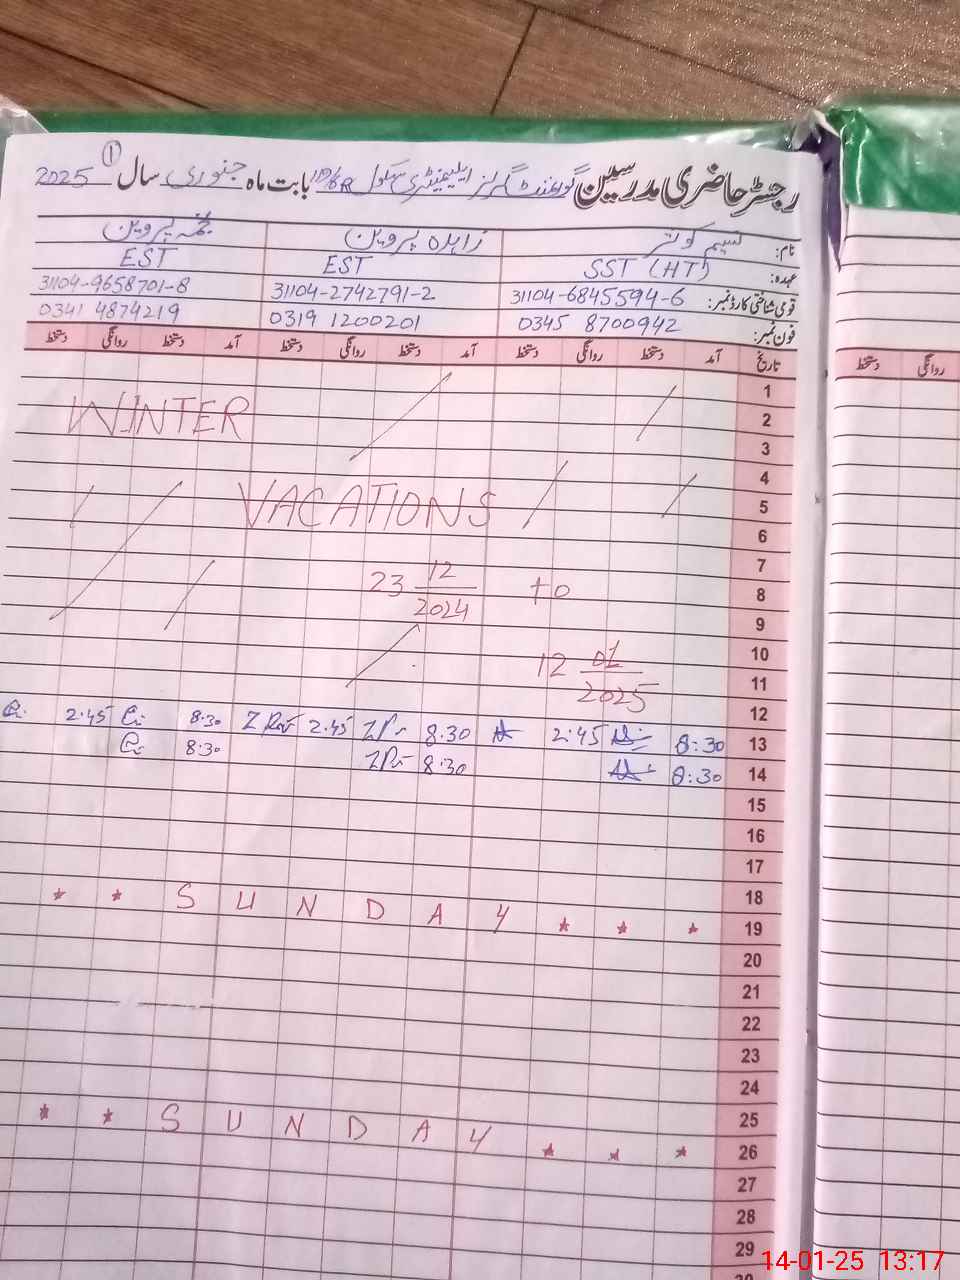 رجسٹر حاضری مدرسین گورنمنٹ گرلز ایلیمنٹری سکول بابت ماہ جنوری سال 2025 ①
نام: نسیم کوثر زاہدہ پروین نجمہ پروین
عہدہ: SST (HT) EST EST
قومی شناختی کارڈ نمبر: 31104-6845594-6 31104-2742791-2 31104-9658701-8
فون نمبر: 0345 8700942 0319 1200201 0341 4874219
تاریخ آمد دستخط روانگی دستخط آمد دستخط روانگی دستخط آمد دستخط روانگی دستخط
روانگی دستخط
1
2
WINTER
3
4
VACATIONS
5
6
7
23 12/2024 to
8
9
10
12 01/2025
11
12
13 8:30 2:45 8.30 2.45 8.30 2.45
14 8:30 8.30 8.30
15
16
17
18
19 * * S U N D A Y * * *
20
21
22
23
24
25
26 * * S U N D A Y * * *
27
28
29
30
14-01-25 13:17